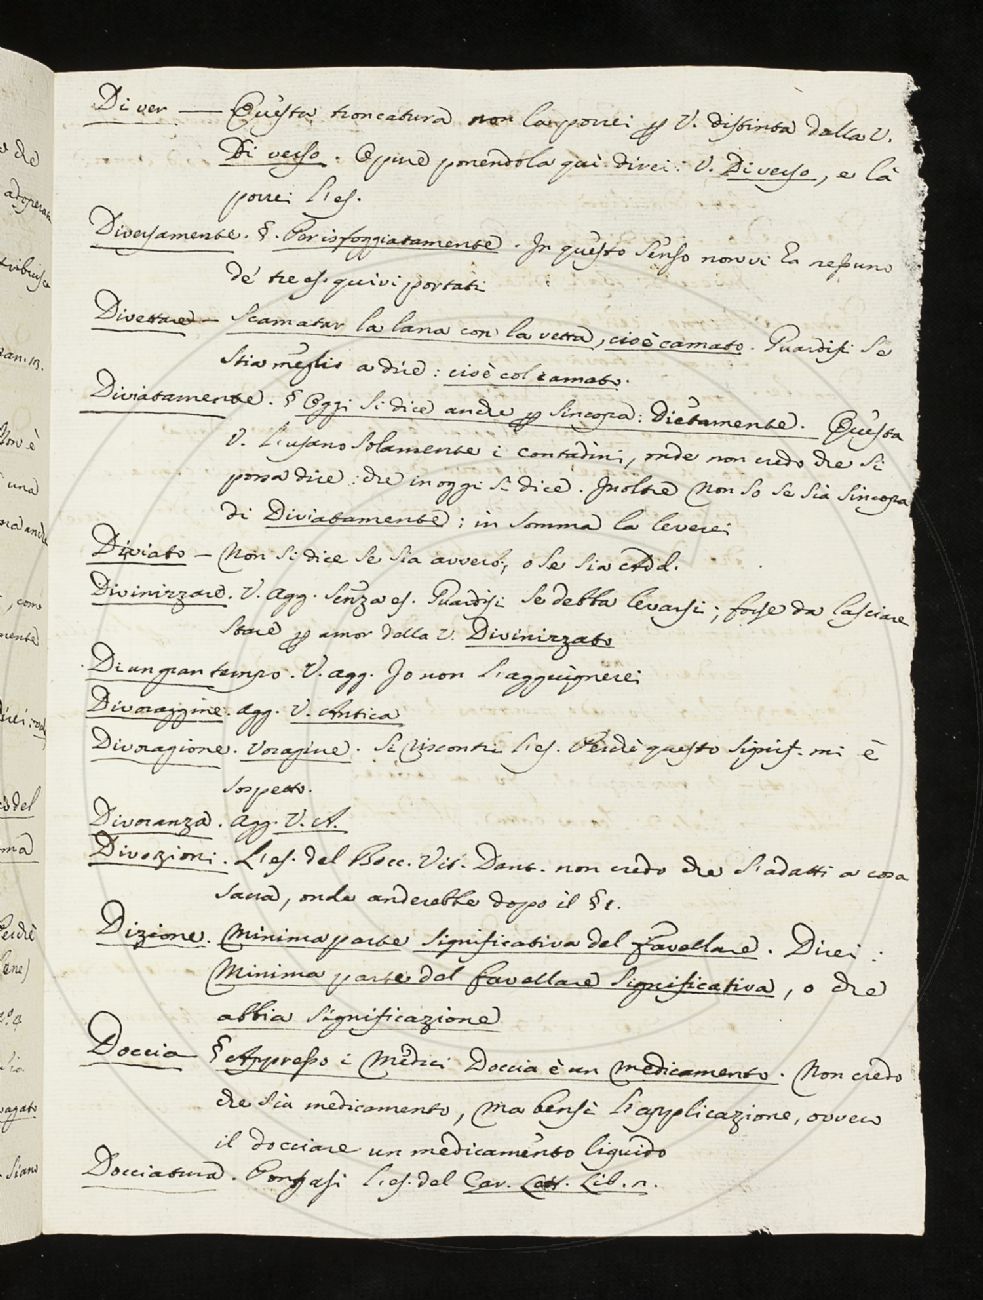 Di ver — Questa troncatura non la porrei p V. distinta dalla V.
Di verso. O pure ponendola qui direi: V. Di verso, e là
porrei l'es.
Diversamente. §. Per isfoggiatamente. In questo senso non vi ha nessuno
de' tre es. quivi portati
Divettare — Scamatar la lana con la vetta, cioè camato. Guardisi se
stia meglio a dire: cioè col camato.
Diviatamente. § Oggi si dice anche p sincopa: Dietamente. Questa
V. l'usano solamente i contadini, onde non credo che si
possa dire: che in oggi si dice. Inoltre non so se sia sincopa
di Diviatamente; in somma la leverei
Diviato — Non si dice se sia avverb., o se sia Add.
Divinizzare. V. Agg. senza es. Guardisi se debba levarsi; forse da lasciare
stare p amor della V. Divinizzato
Di un gran tempo. V. agg. Io non l'aggiugnerei
Divoraggine. agg. V. Antica
Divoragione. Voragine. Si riscontri l'es. Perchè questo signif. mi è
sospetto.
Divoranza. Agg. V. A.
Divozioni. L'es. del Bocc. Vit. Dant. non credo che s'adatti a cosa
sacra, onde anderebbe dopo il § 1.
Dizione. Minima parte significativa del favellare. Direi:
Minima parte del favellare significativa, o che
abbia significazione
Doccia § Appresso i Medici Doccia è un medicamento. Non credo
che sia medicamento, ma bensì l'applicazione, ovvero
il docciare un medicamento liquido
Docciatura. Pongasi l'es. del Car. Lett. Lib. n.